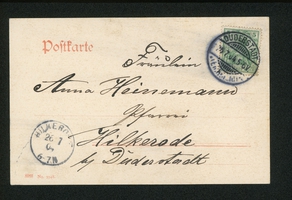 Postkarte
Fräulein
Anna Heinemann
Pfarrei
Hilkerode
b/ Duderstadt
HILKERODE
26 7
6-7N
DUDERSTADT